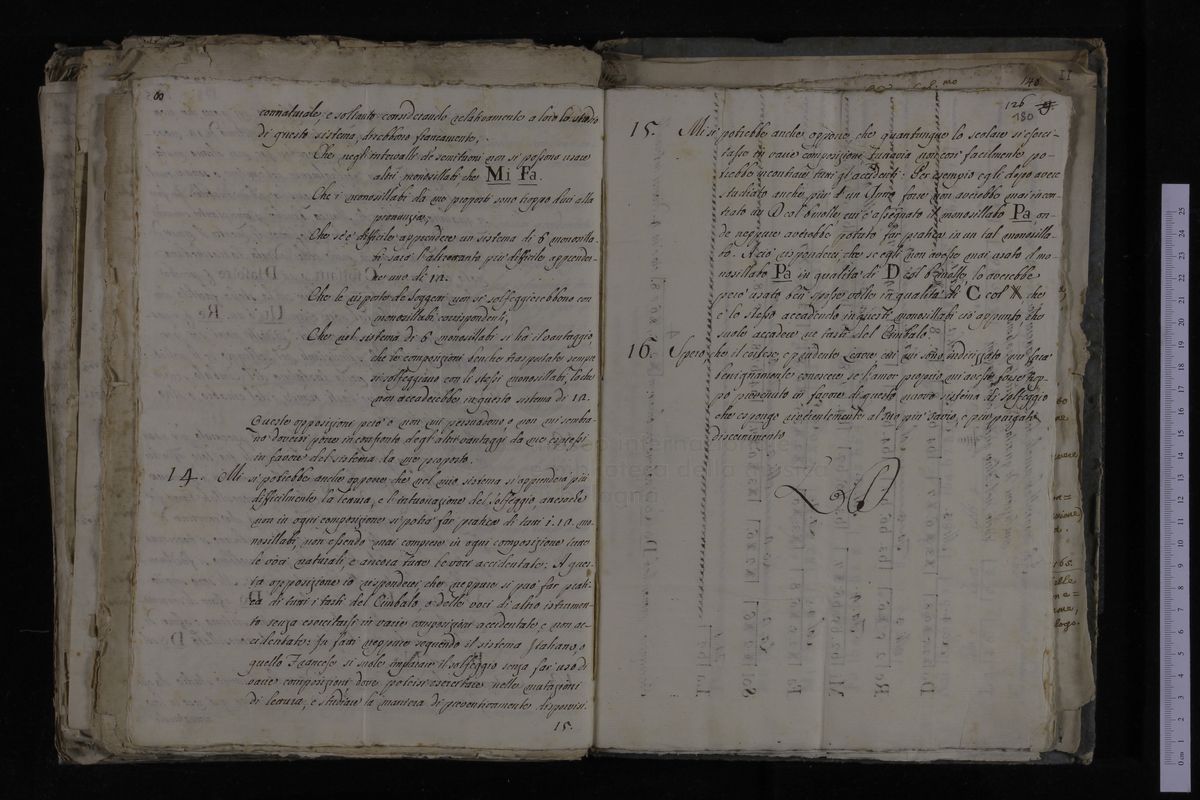 8
connaturale, e soltanto considerarle relativamente a loro lo stato
di questo sistema, direbbono francamente,
Che negl'intervalli de semituoni non si possono usare
altri monosillabi, che Mi Fa.
Che i monosillabi da me proposti sono troppo duri alla
pronunzia;
Che se è difficile apprendere un sistema di 6 monosilla-
bi sarà l'altrettanto più difficile apprender-
ne uno di 12.
Che le risposte de soggetti non si solfeggierebbono con
monosillabi corrispondenti,
Che nel sistema di 6 monosillabi si ha il vantaggio,
che le composizioni benche trasportate sempre
si solfeggiano con li stessi monosillabi, loche
non accaderebbe in questo sistema di 12.
Queste opposizioni però o non mi persuadono, o non mi sembra-
no doversi porre in confronto degl'altri vantaggi da me espressi
in favore del sistema da me proposto.
14. Mi si potrebbe anche opporre che nel mio sistema si apprenderà più
difficilmente la lettura, e l'intuonazione del solfeggio, anesoche
non in ogni composizione si potrà far pratica di tutti i 12 mo-
nosillabi, non essendo mai comprese in ogni composizione tutte
le voci naturali, e ancora tutte le voci accidentate: A ques-
ta opposizione io risponderei che neppure si può far prati-
ca di tutti i tasti del Cimbalo, o delle voci di altro istrumen-
to senza esercitarsi in varie composizioni accidentate, e non ac-
cidentate: In fatti neppure seguendo il sistema Italiano, o
quello Francese si suole imparare il solfeggio senza far uso di
varie composizioni dove potersi esercitare nelle mutazioni
di lettura, e studiare la maniera di preventivamente disporvisi.
15.
II
140
126 9.
130
15. Mi si potrebbe anche opporre che quantunque lo scolare si eserci-
tasse in varie composizioni tuttavia non così facilmente po-
trebbe incontrare tutti gl'accidenti: Per esempio egli dopo avere
studiato anche più d'un Anno forse non averebbe mai incon-
trato un D col b molle cui è assegnato il monosillabo Pa on-
de neppure averebbe potuto far pratica in un tal monosilla-
bo. A ciò risponderei che se egli non avesse mai usato il mo-
nosillabo Pa in qualità di D col b molle, lo averebbe
però usato ben spesse volte in qualità di C col X che
è lo stesso accadendo in questi monosillabi ciò appunto che
suole accadere ne tasti del Cimbalo.
16. Spero, che il cortese, e prudente Lettore cui mi sono indirizzato mi farà
benignamente conoscere se l'amor proprio mi avesse forse trop-
po prevenuto in favore di questo nuovo sistema di solfeggio
che espongo riverentemente al suo più savio, e più purgato
discernimento